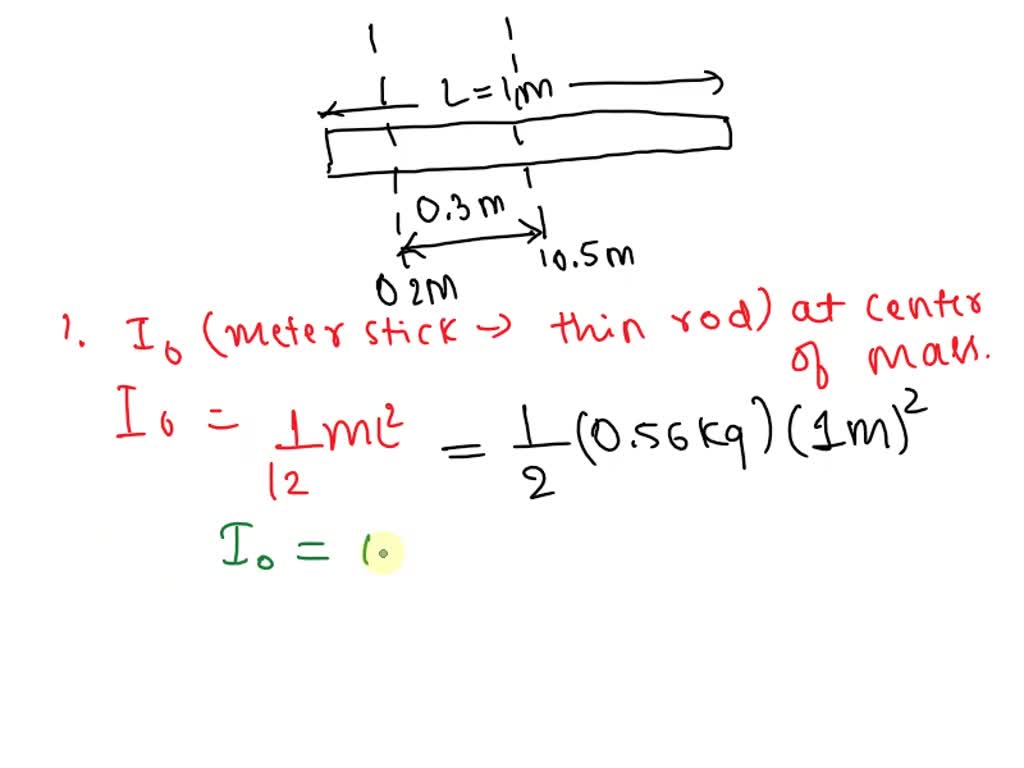 L = 1m
0.3 m
0.5m
0 2M
1. I₀ (meter stick → thin rod) at center
of mass.
I₀ = 1/12 mL² = 1/2 (0.56 kg) (1m)²
I₀ =